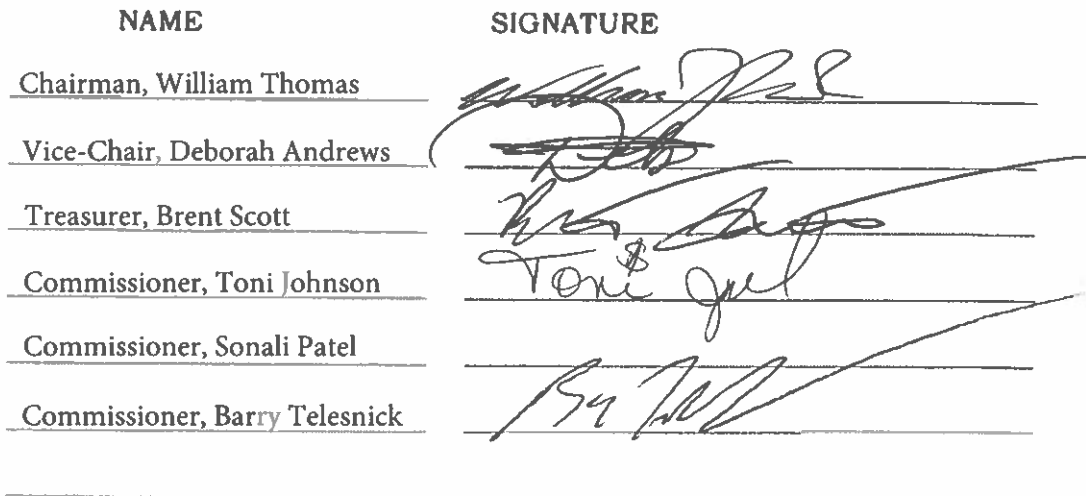 NAME SIGNATURE
Chairman, William Thomas William
Vice-Chair, Deborah Andrews Deb
Treasurer, Brent Scott
Commissioner, Toni Johnson Toni
Commissioner, Sonali Patel
Commissioner, Barry Telesnick